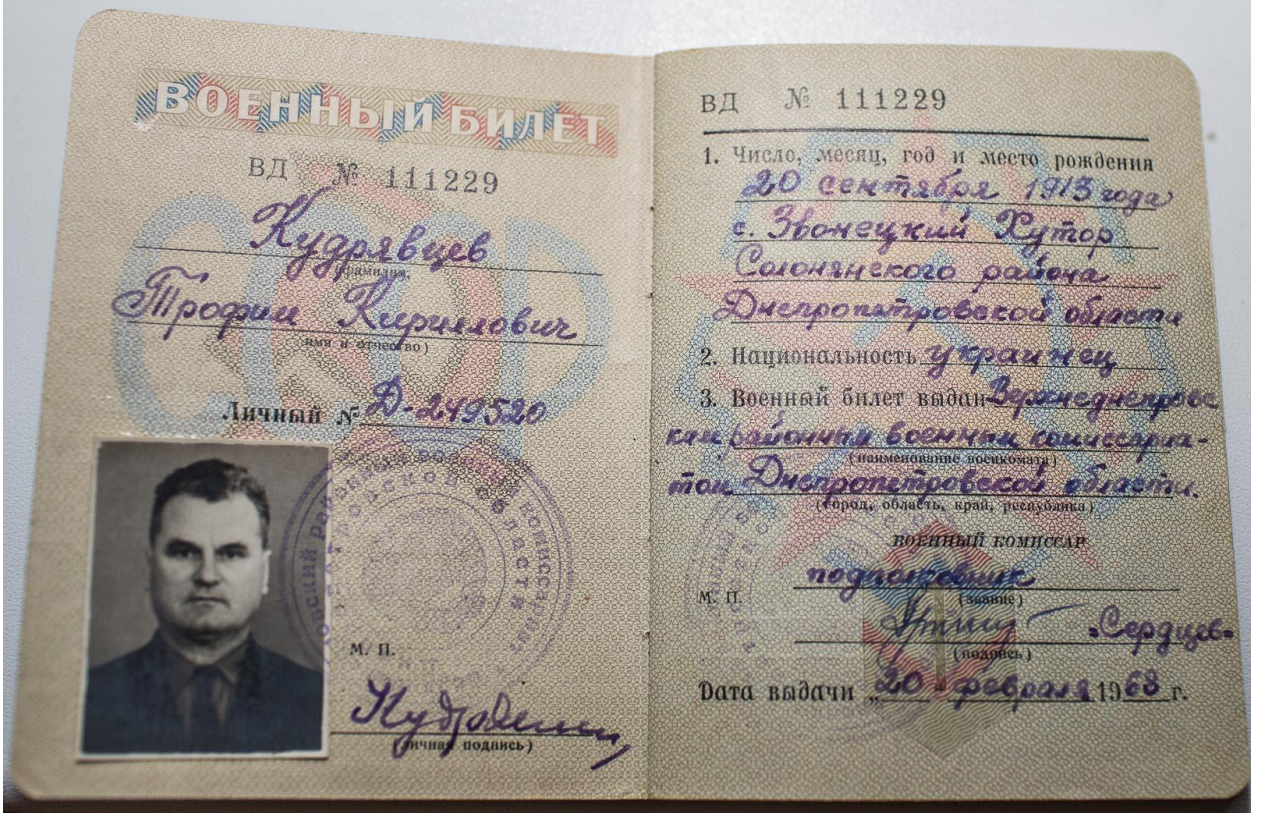 ВОЕННЫЙ БИЛЕТ
ВД № 111229
Кудрявцев
(фамилия,
Трофим Кириллович
имя и отчество)
Личный № Д-249520
М. П.
(личная подпись)
ВД № 111229
1. Число, месяц, год и место рождения
20 сентября 1913 года
с. Звонецкий Хутор
Солонянского района
Днепропетровской области
2. Национальность украинец
3. Военный билет выдан Верхнеднепровс
ким районным военным комиссариа-
(наименование военкомата)
том Днепропетровской области.
(город, область, край, республика)
ВОЕННЫЙ КОМИССАР
подполковник
М. П. (звание)
"Сердцев"
(подпись)
Дата выдачи „20" февраля 1968 г.